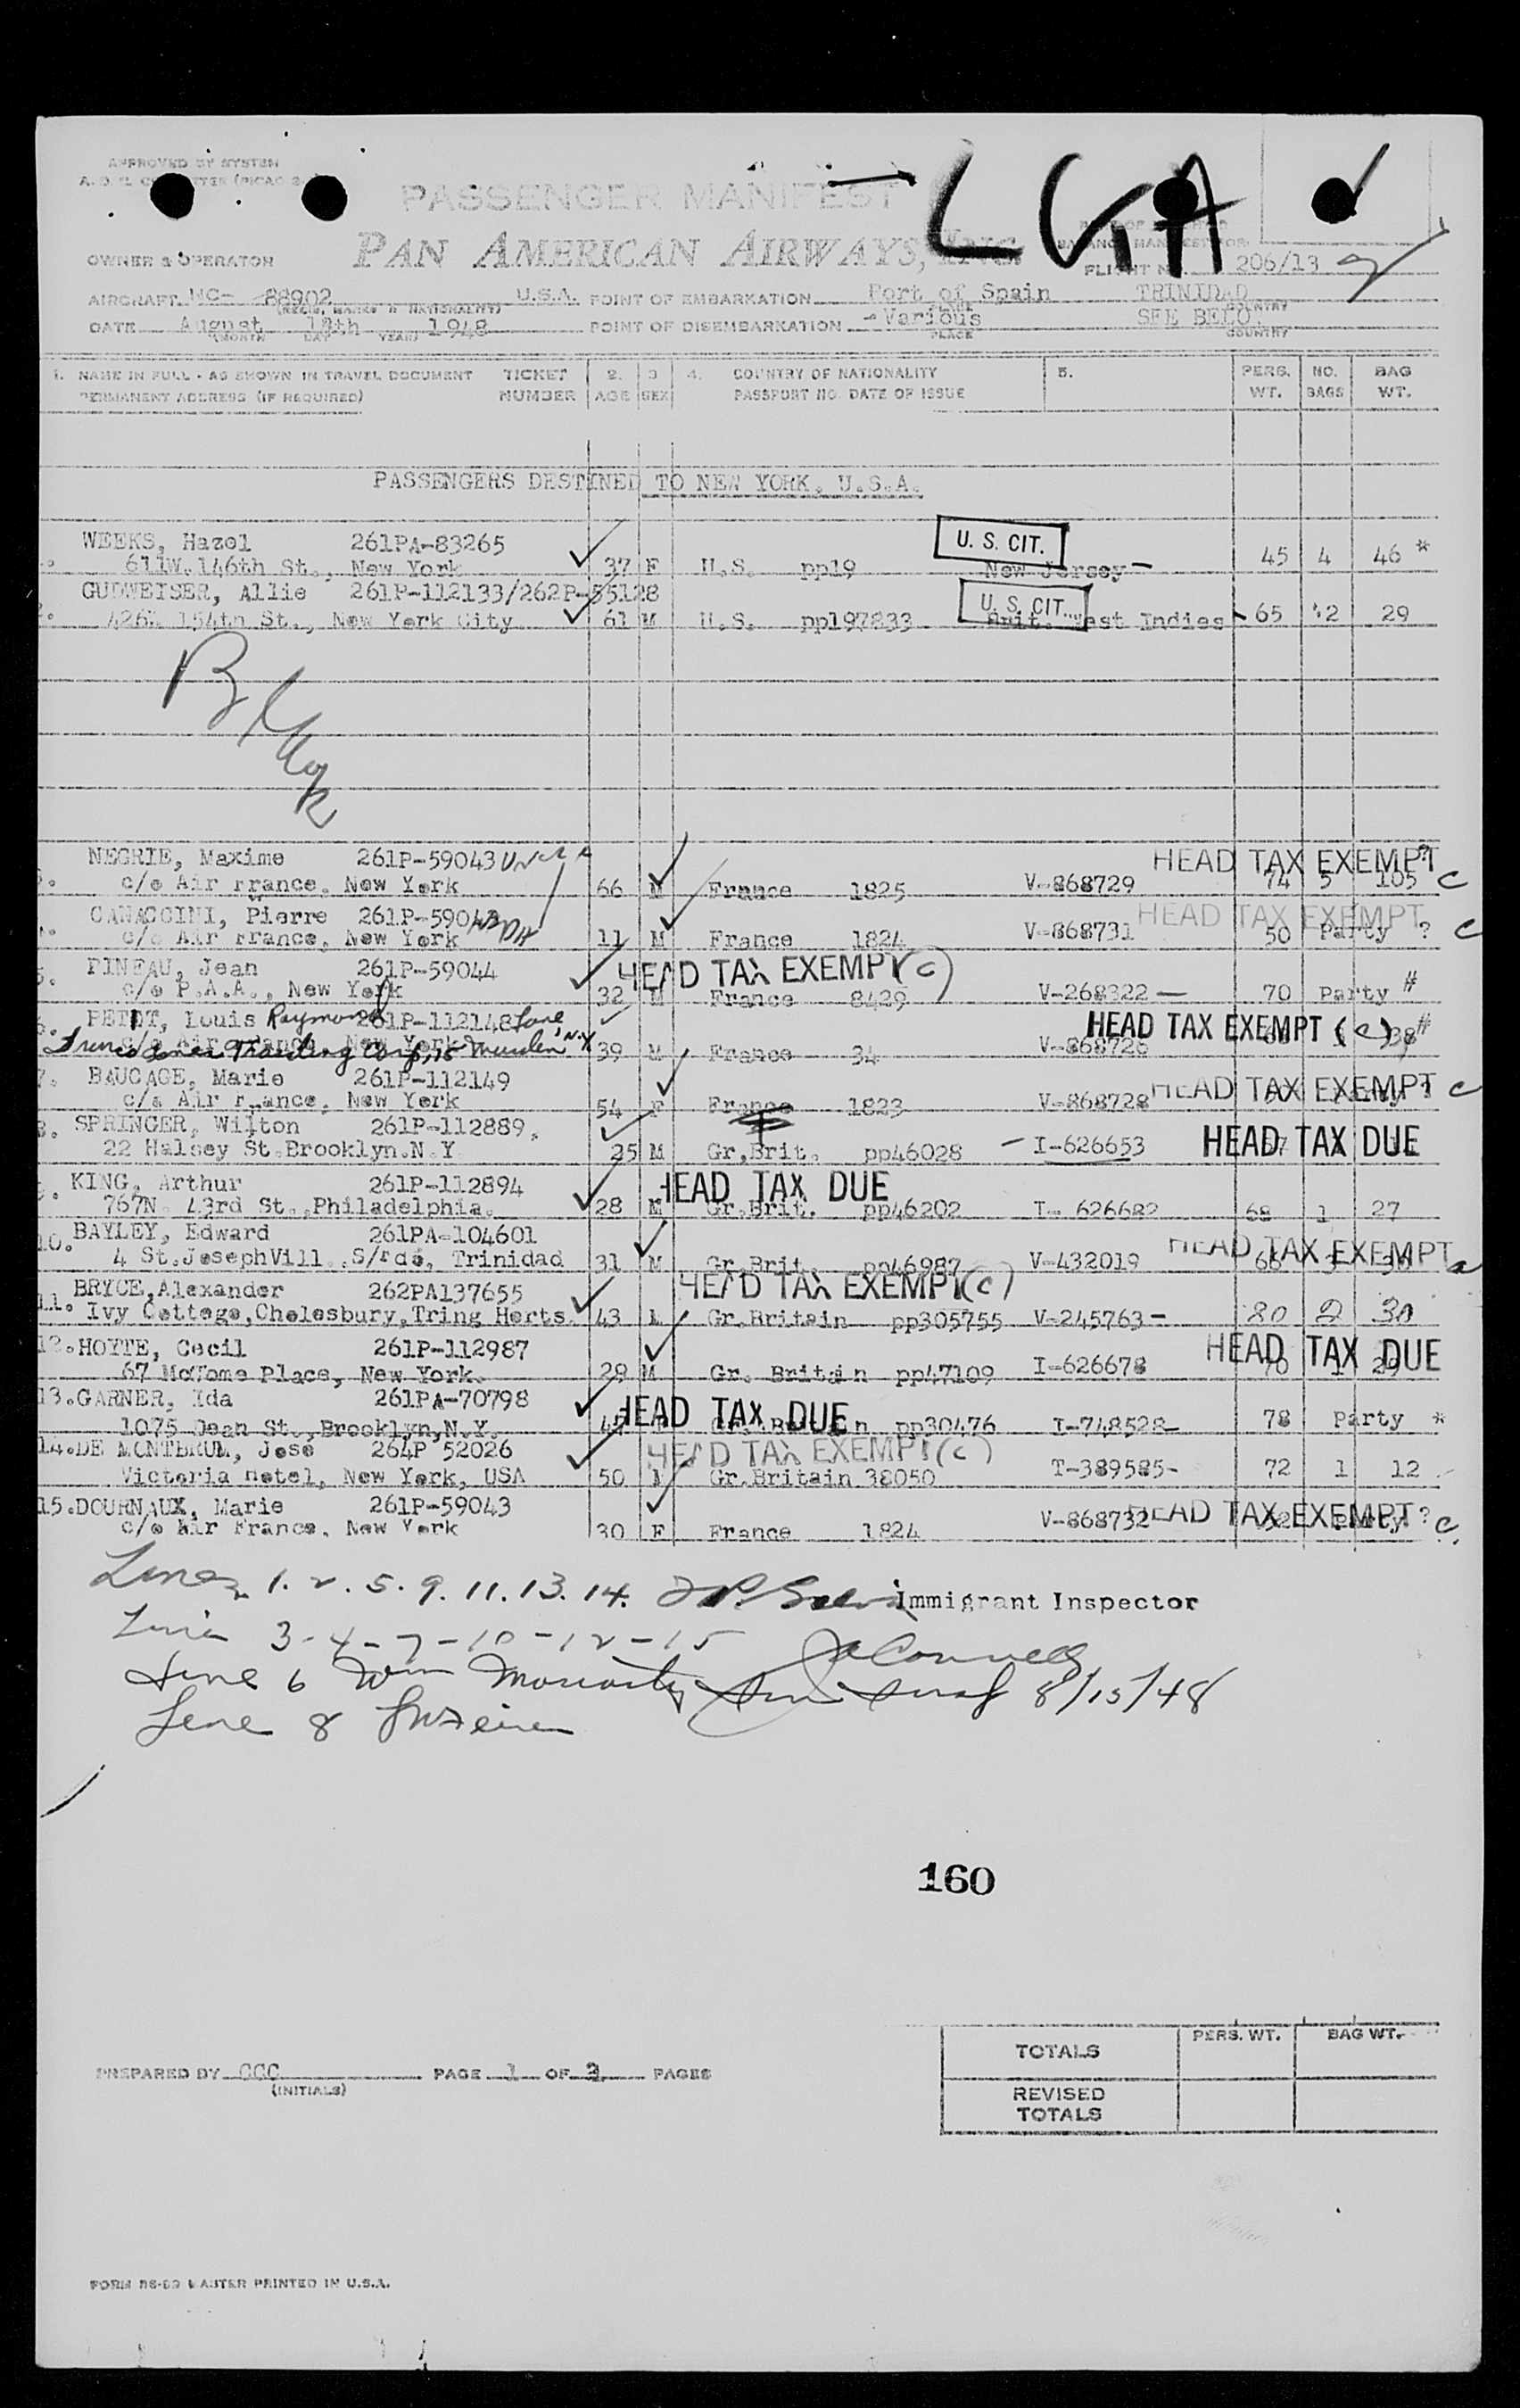 APPROVED BY SYSTEM
PASSENGER MANIFEST
LGA
PAN AMERICAN AIRWAYS, INC.
OWNER & OPERATOR
FLIGHT NO. 206/13
AIRCRAFT NC- 88902 U.S.A. POINT OF EMBARKATION Port of Spain TRINIDAD
(REGIS. MARKS & NATIONALITY) PLACE COUNTRY
DATE August 18th 1948 POINT OF DISEMBARKATION Various SEE BELOW
(MONTH DAY YEAR) PLACE COUNTRY
1. NAME IN FULL - AS SHOWN IN TRAVEL DOCUMENT TICKET 2. 3 4. COUNTRY OF NATIONALITY 5. PERS. NO. BAG
PERMANENT ADDRESS (IF REQUIRED) NUMBER AGE SEX PASSPORT NO. DATE OF ISSUE WT. BAGS WT.
PASSENGERS DESTINED TO NEW YORK, U.S.A.
WEEKS, Hazel 261PA-83265 U. S. CIT.
611W. 146th St., New York 37 F U.S. pp19 New Jersey 45 4 46 *
GUDWEISER, Allie 261P-112133/262P-55128 U. S. CIT.
426W 154th St., New York City 61 M U.S. pp197833 Brit. West Indies 65 2 29
NEGRIE, Maxime 261P-59043 HEAD TAX EXEMPT
c/o Air France, New York 66 M France 1825 V-868729 74 5 105 c
CANACCINI, Pierre HEAD TAX EXEMPT
c/o Air France, New York 11 M France 1824 V-868731 50 Party ? c
5. PINEAU, Jean 261P-59044 HEAD TAX EXEMPT (c)
c/o P.A.A., New York 32 M France 8429 V-268322 70 Party #
6. PETIT, Louis Raymond 261P-112148 HEAD TAX EXEMPT (c) 38 #
c/o Air France, New York 39 M France 34 V-868726
7. BAUCAGE, Marie 261P-112149 HEAD TAX EXEMPT c
c/o Air France, New York 54 F France 1823 V-868728
8. SPRINGER, Wilton 261P-112889. HEAD TAX DUE
22 Halsey St.Brooklyn.N.Y. 25 M Gr.Brit. pp46028 I-626653
KING, Arthur 261P-112894 HEAD TAX DUE
767N. 43rd St.,Philadelphia. 28 M Gr.Brit. pp46202 I-626682 68 1 27
10. BAYLEY, Edward 261PA-104601 HEAD TAX EXEMPT
4 St.JosephVill.,S/rdo, Trinidad 31 M Gr.Brit. pp46987 V-432019
11. BRYCE,Alexander 262PA137655 HEAD TAX EXEMPT (c)
Ivy Cottage,Cholesbury,Tring Herts. 43 M Gr.Britain pp305755 V-245763- 80 2 30
12. HOYTE, Cecil 261P-112987 HEAD TAX DUE
67 McTome Place, New York. 28 M Gr. Britain pp47109 I-626678 70 1 29
13. GARNER, Ida 261PA-70798 HEAD TAX DUE
1075 Dean St.,Brooklyn,N.Y. Gr.Britain pp30476 I-748528 78 Party *
14. DE MONTBRUM, Jose 264P 52026 HEAD TAX EXEMPT (c)
Victoria hotel, New York, USA 50 M Gr.Britain 38050 T-389585- 72 1 12
15. DOURNAUX, Marie 261P-59043 HEAD TAX EXEMPT ? c
c/o Air France, New York 30 F France 1824 V-868732
Lines 1. 2. 5. 9. 11. 13. 14. Immigrant Inspector
Line 3-4-7-10-12-15
Line 6 8/15/48
Line 8
160
TOTALS PERS. WT. BAG WT.
REVISED TOTALS
PREPARED BY CCC PAGE 1 OF PAGES
(INITIALS)
FORM MASTER PRINTED IN U.S.A.